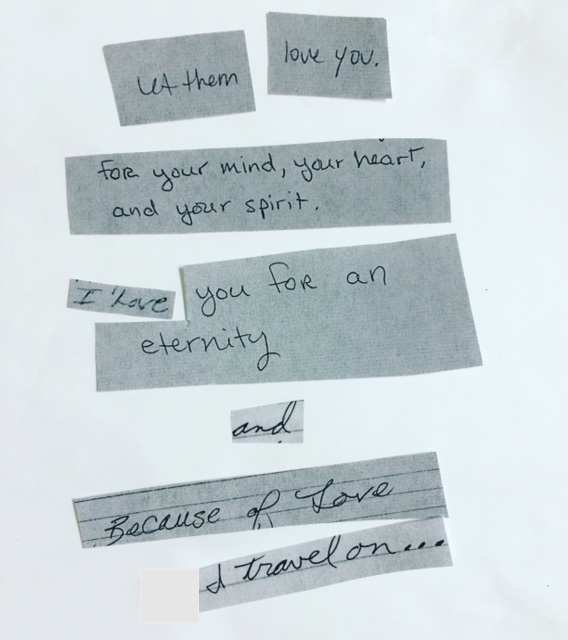 Let them love you.
For your mind, your heart,
and your spirit.
I Love you for an
eternity
and
Because of Love
I travel on...